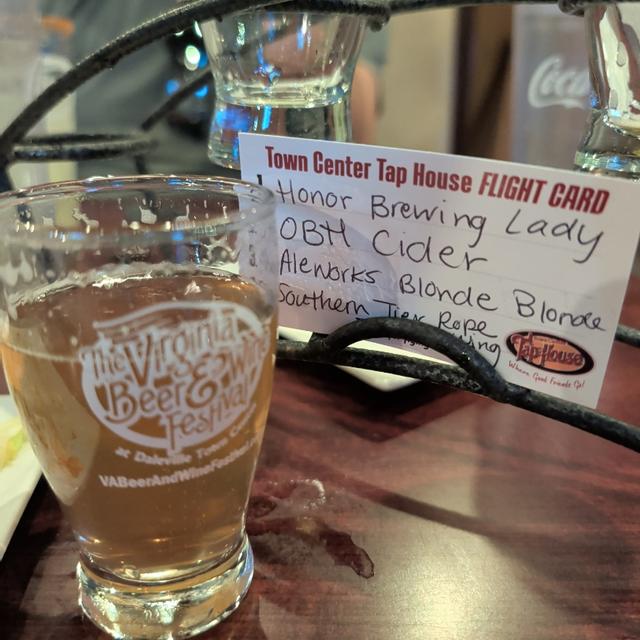 Town Center Tap House FLIGHT CARD
Honor Brewing Lady
OBH Cider
Aleworks Blonde Blonde
Southern Tier Rope
Tap House
Where Good Friends Go!
Coca
The Virginia
Beer & Wine
Festival
at Daleville Town
VABeerAndWineFestival